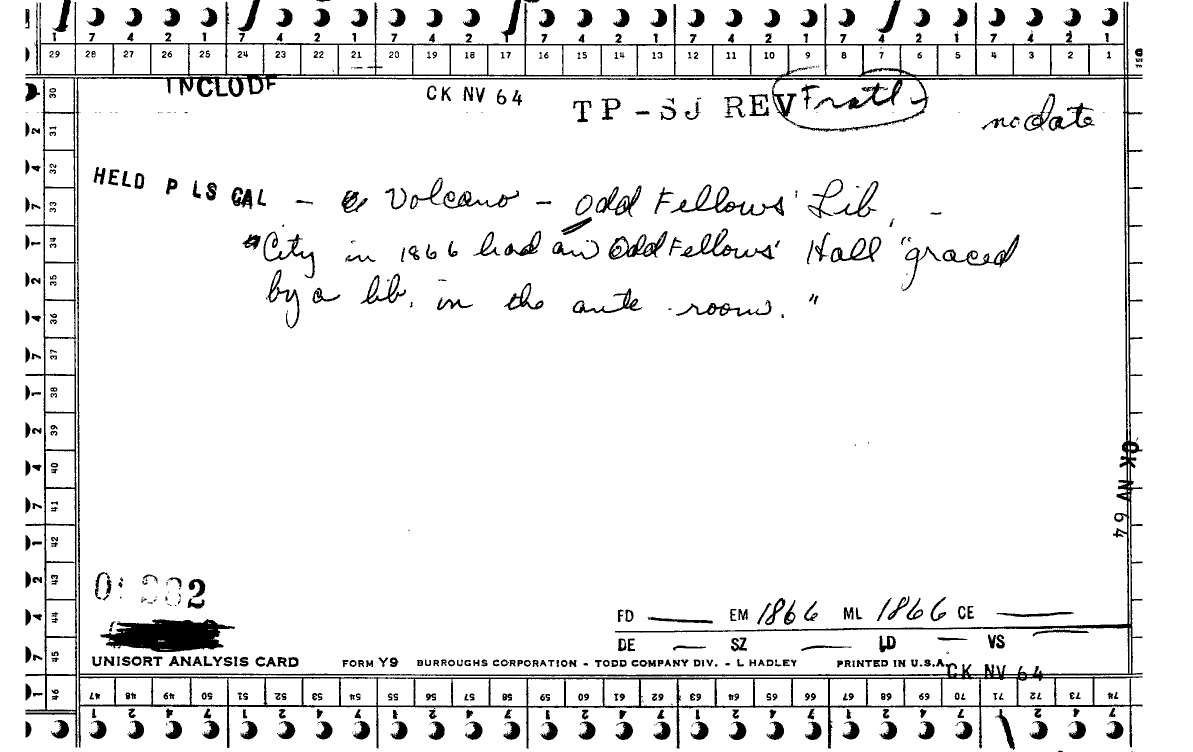 1 7 4 2 1 7 4 2 1 7 4 2 1 7 4 2 1 7 4 2 1 7 4 2 1 7 4 2 1
29 28 27 26 25 24 23 22 21 20 19 18 17 16 15 14 13 12 11 10 9 8 7 6 5 4 3 2 1
INCLUDE
CK NV 64
TP-SJ REV Fratl-
no date
HELD P LS CAL - Volcano - Odd Fellows' Lib. -
"City in 1866 had an Odd Fellows' Hall "graced
by a lib. in the ante room."
30
2 31
4 32
7 33
1 34
2 35
4 36
7 37
1 38
2 39
4 40
7 41
1 42
2 43
4 44
7 45
1 46
CK NV 64
2
FD — EM 1866 ML 1866 CE —
DE — SZ — LD — VS —
UNISORT ANALYSIS CARD FORM Y9 BURROUGHS CORPORATION - TODD COMPANY DIV. - L HADLEY PRINTED IN U.S.A.
CK NV 64
47 48 49 50 51 52 53 54 55 56 57 58 59 60 61 62 63 64 65 66 67 68 69 70 71 72 73 74
1 2 4 7 1 2 4 7 1 2 4 7 1 2 4 7 1 2 4 7 1 2 4 7 1 2 4 7